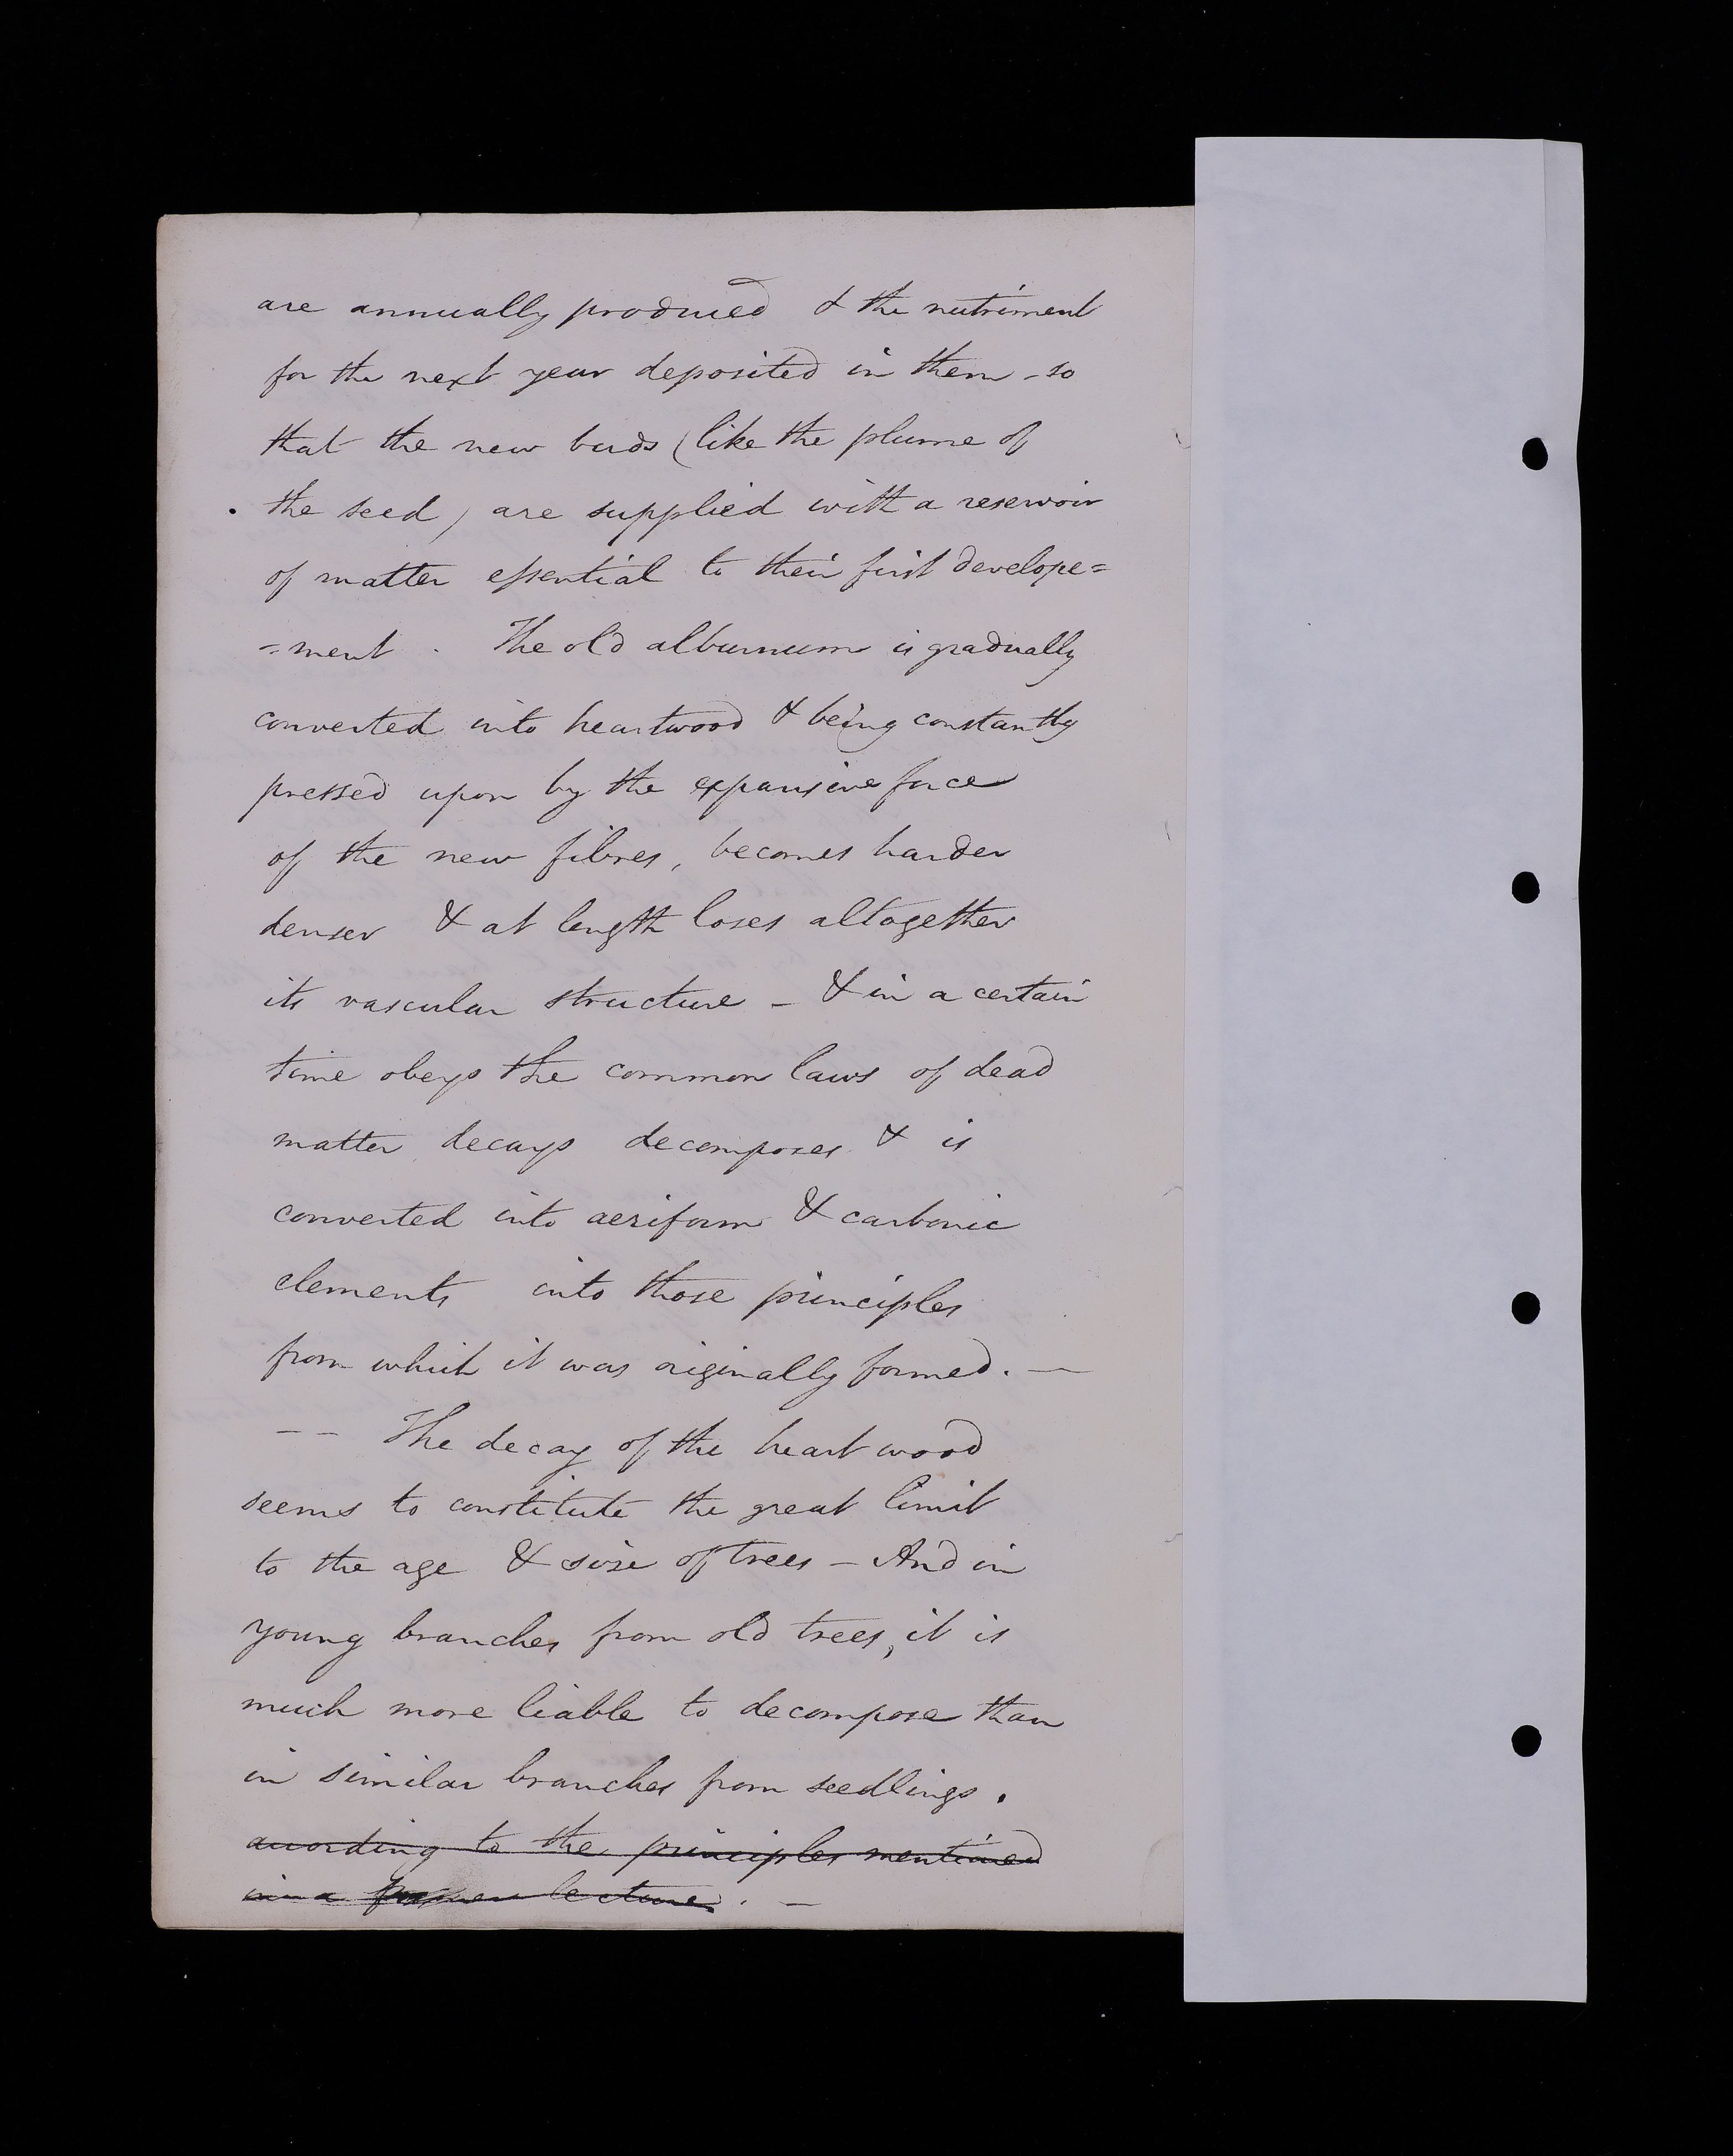 are annually produced & the nutriment
for the next year deposited in them - so
that the new buds (like the plume of
the seed) are supplied with a reservoir
of matter essential to their first develope=
=ment. The old alburnum is gradually
converted into heartwood & being constantly
pressed upon by the expansive force
of the new fibres, becomes harder
denser & at length loses altogether
its vascular structure - & in a certain
time obeys the common laws of dead
matter decays decomposes & is
converted into aeriform & carbonic
elements into those principles
from which it was originally formed. —
-- The decay of the heart wood
seems to constitute the great limit
to the age & size of trees - And in
young branches from old trees, it is
much more liable to decompose than
in similar branches from seedlings.
according to the principles mentioned
in a former lecture. -